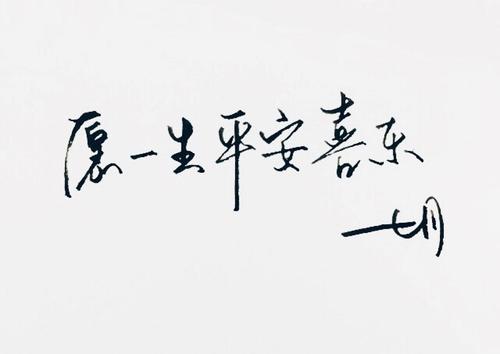 愿一生平安喜乐
七月